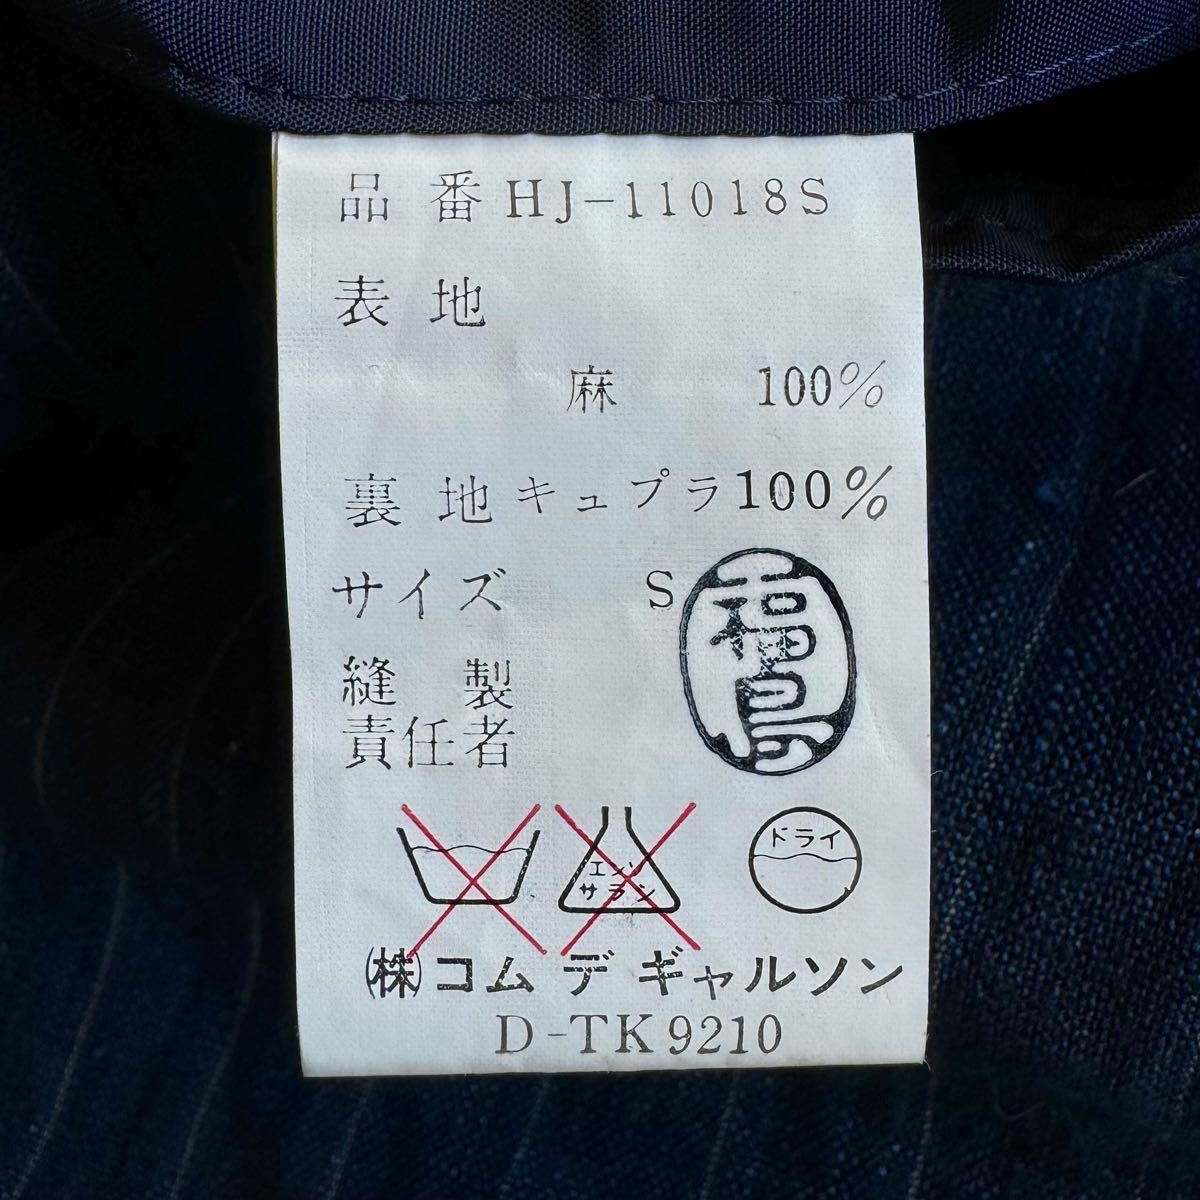 品番 HJ-11018S
表地
麻 100%
裏地 キュプラ 100%
サイズ S
福島
縫製
責任者
エンソ
サラシ
ドライ
㈱コム デ ギャルソン
D-TK9210